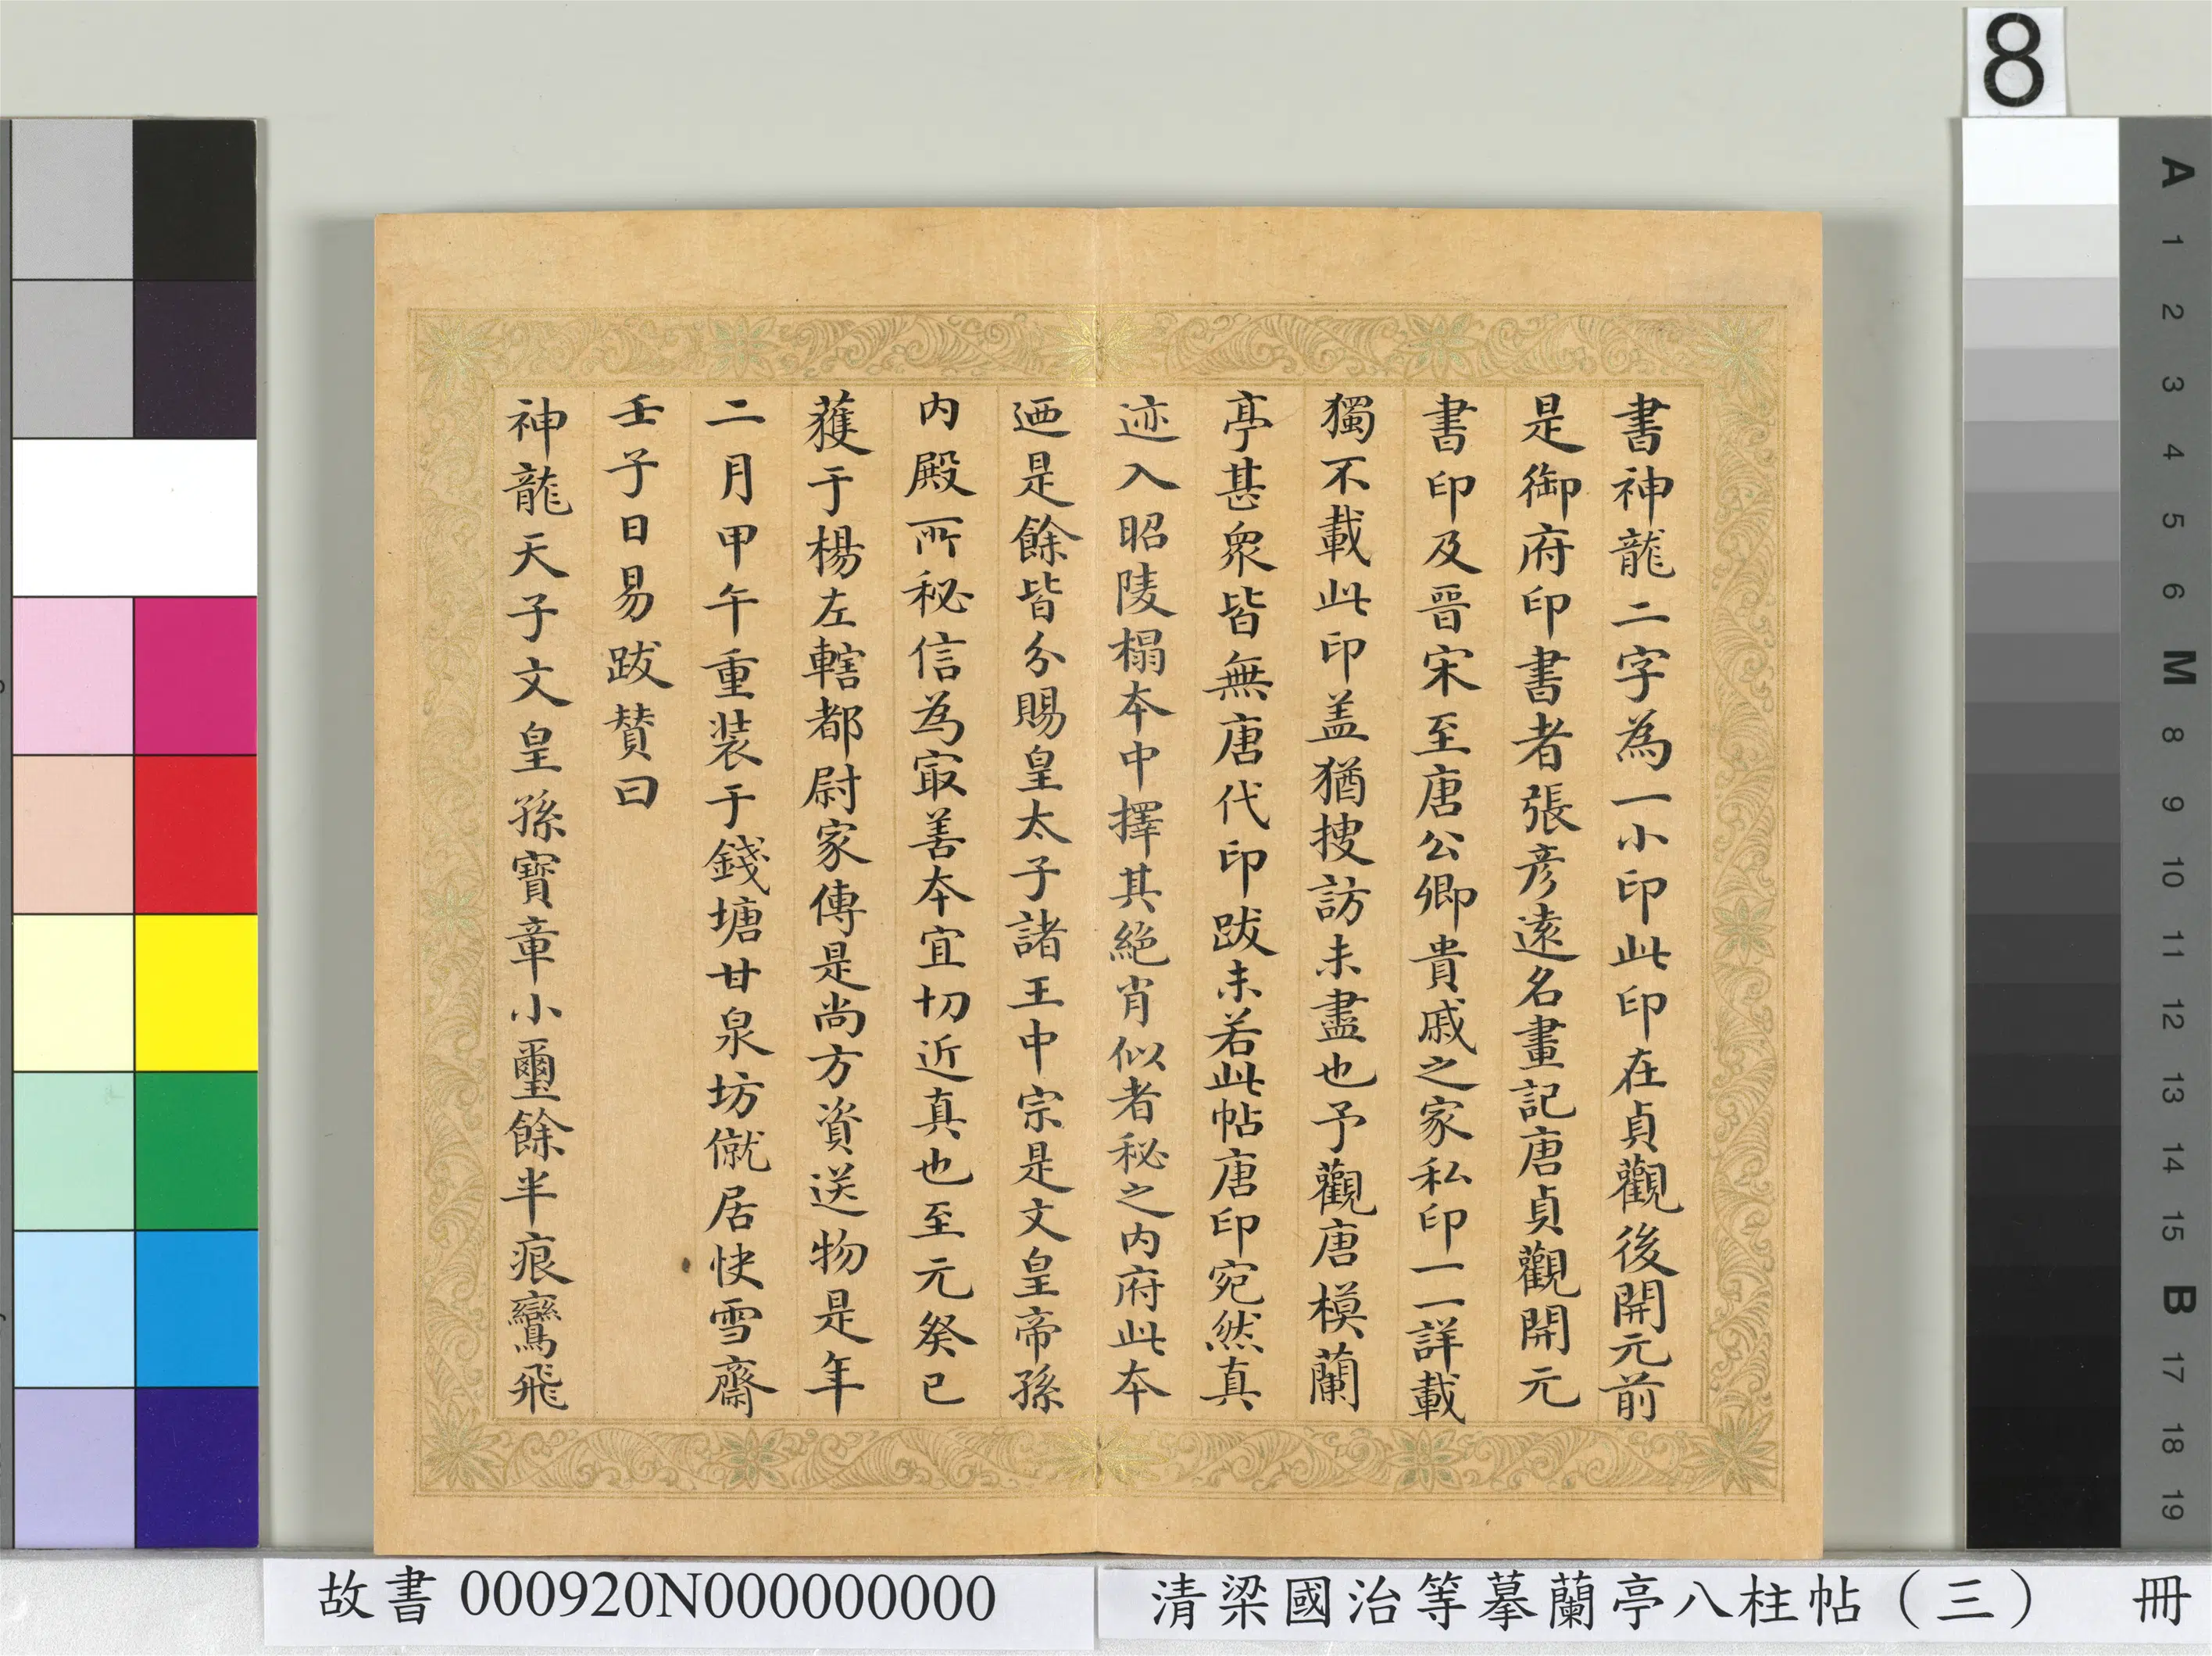 8
書神龍二字為一小印此印在貞觀後開元前
是御府印書者張彥遠名畫記唐貞觀開元
書印及晉宋至唐公卿貴戚之家私印一一詳載
獨不載此印盖猶捜訪未盡也予觀唐模蘭
亭甚衆皆無唐代印跋未若此帖唐印宛然真
迹入昭陵榻本中擇其絕肖似者秘之内府此本
迺是餘皆分賜皇太子諸王中宗是文皇帝孫
内殿所秘信為㝡善本宜切近真也至元癸已
獲于楊左轄都尉家傳是尚方資送物是年
二月甲午重装于錢塘甘泉坊僦居快雪齋
壬子日易跋賛曰
神龍天子文皇孫寶章小璽餘半痕鸞飛
A
1
2
3
4
5
6
M
8
9
10
11
12
13
14
15
B
17
18
19
故書 000920N000000000
清梁國治等摹蘭亭八柱帖（三） 冊